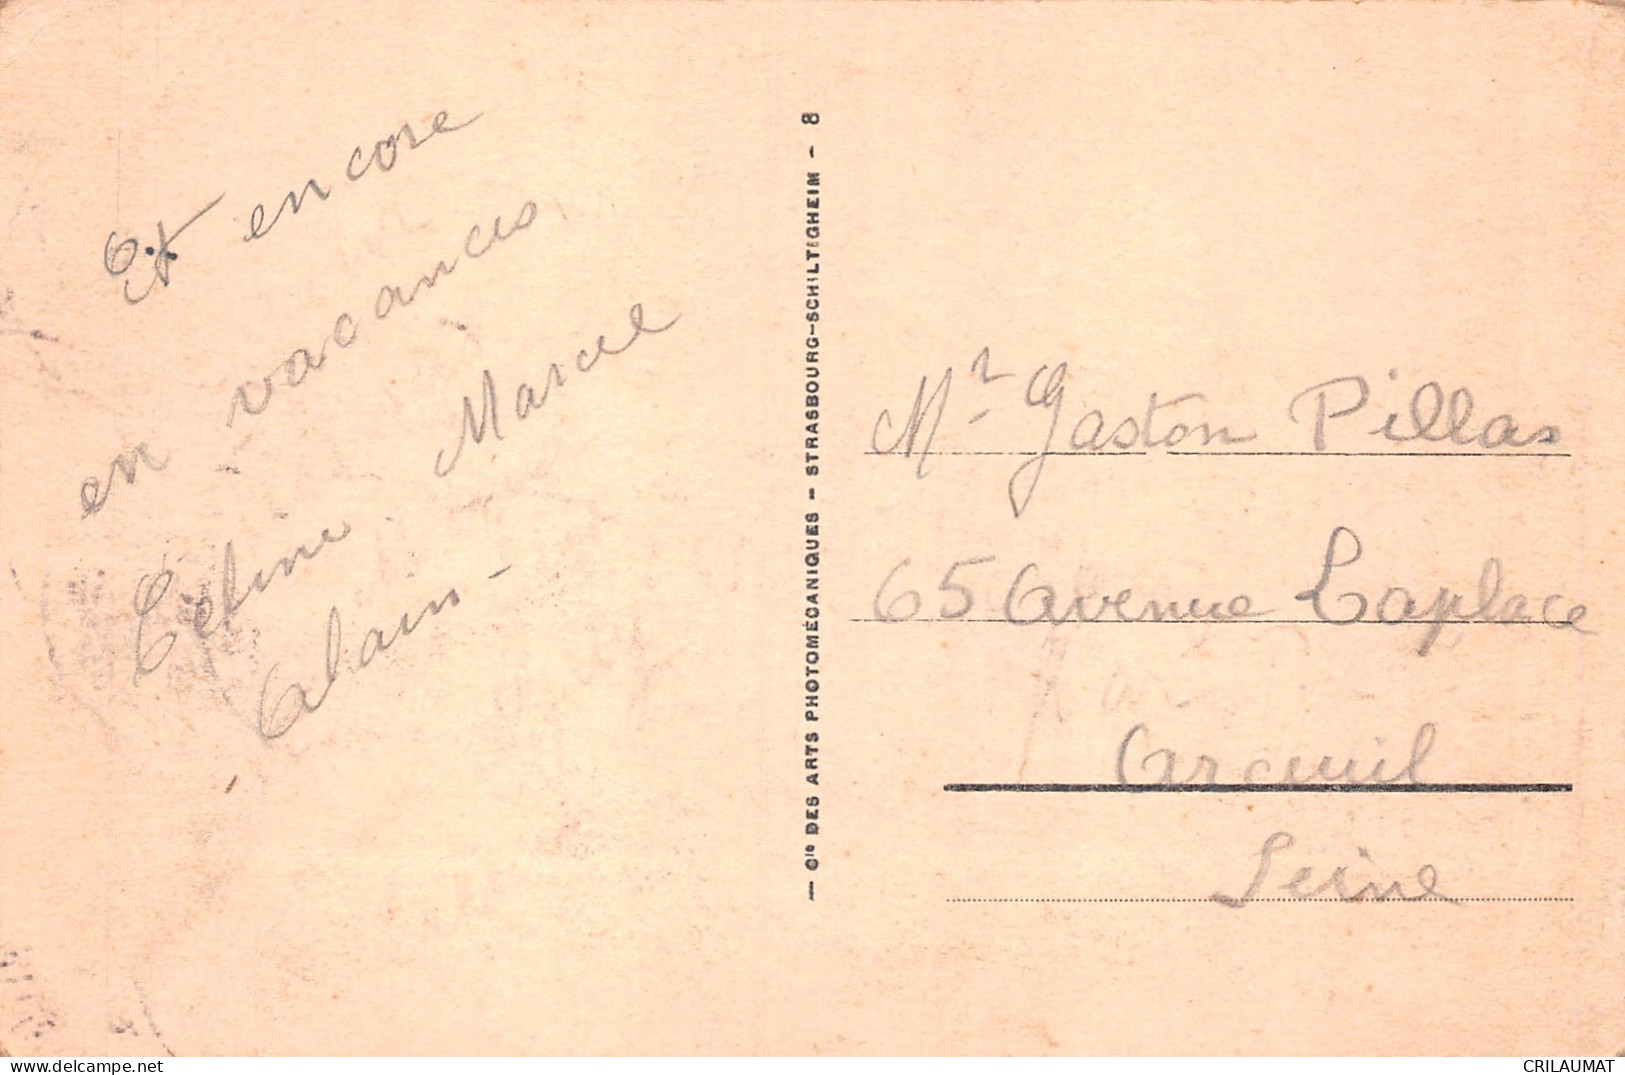 Et encore
en vacances
Céline. Marcel
Alain -
— Cie DES ARTS PHOTOMÉCANIQUES - STRASBOURG-SCHILTIGHEIM - 8
Mr Gaston Pillas
65 Avenue Laplace
Arcueil
Seine
www.delcampe.net
CRILAUMAT